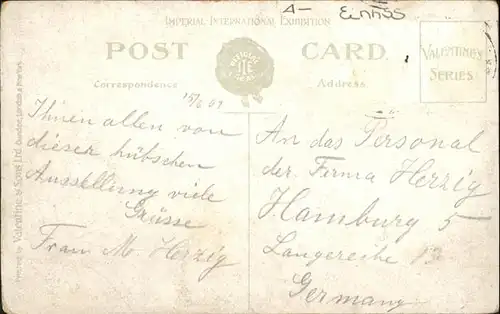 IMPERIAL INTERNATIONAL EXHIBITION
POST CARD.
VALENTINE'S
SERIES
Correspondence
Address.
15/6 09
Ihnen allen von
dieser hübschen
Ausstellung viele
Grüsse
Frau M Herzig
An das Personal
der Firma Herzig
Hamburg 5
Langereihe 13
Germany
Printed by Valentine & Sons Ltd Dundee, London & New York